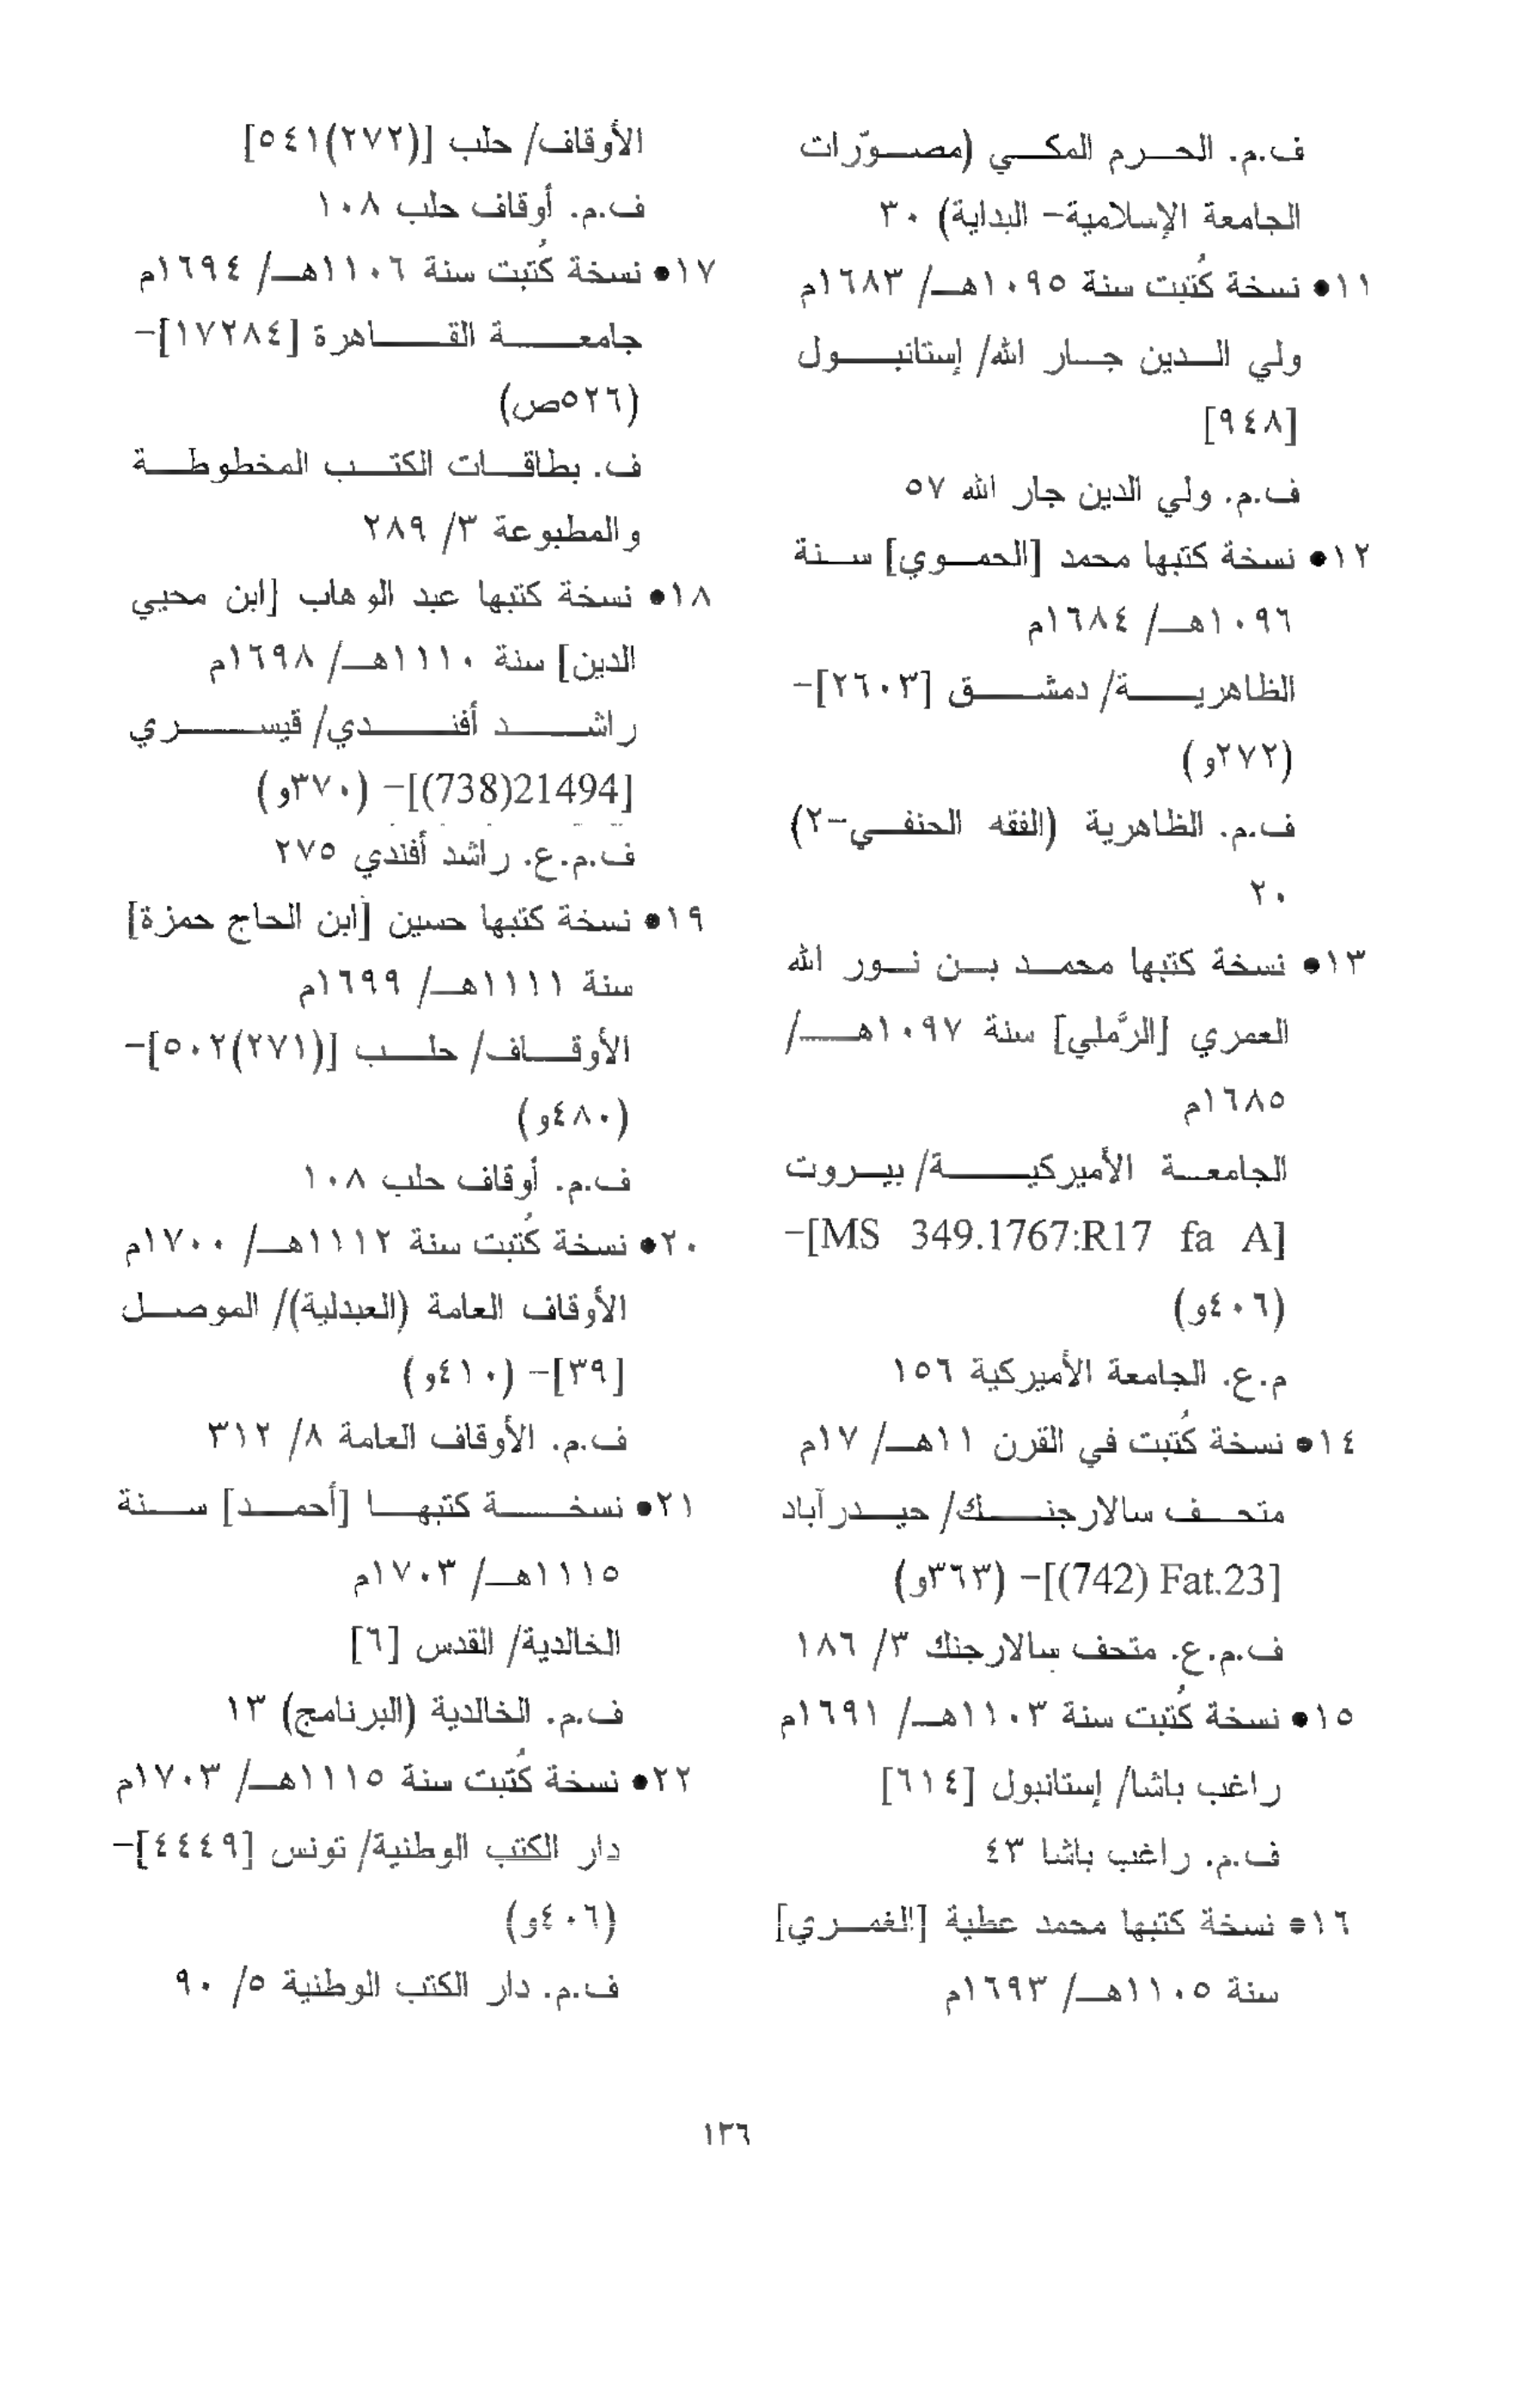 ف.م. الحرم المكي (مصوّرات
الجامعة الإسلامية- البداية) ٣٠
١١● نسخة كُتبت سنة ١٠٩٥هـ/ ١٦٨٣م
ولي الدين جار الله/ إستانبول
[٩٤٨]
ف.م. ولي الدين جار الله ٥٧
١٢● نسخة كتبها محمد [الحموي] سنة
١٠٩٦هـ/ ١٦٨٤م
الظاهرية/ دمشق [٢٦٠٣]-
(٢٧٢و)
ف.م. الظاهرية (الفقه الحنفي-٢)
٢٠
١٣● نسخة كتبها محمد بن نور الله
العمري [الرَّملي] سنة ١٠٩٧هـ/
١٦٨٥م
الجامعة الأميركية/ بيروت
[MS 349.1767:R17 fa A]-
(٤٠٦و)
م.ع. الجامعة الأميركية ١٥٦
١٤● نسخة كُتبت في القرن ١١هـ/ ١٧م
متحف سالارجنك/ حيدرآباد
[(742) Fat.23]- (٣٦٣و)
ف.م.ع. متحف سالارجنك ٣/ ١٨٦
١٥● نسخة كُتبت سنة ١١٠٣هـ/ ١٦٩١م
راغب باشا/ إستانبول [٦١٤]
ف.م. راغب باشا ٤٣
١٦● نسخة كتبها محمد عطية [الغمري]
سنة ١١٠٥هـ/ ١٦٩٣م
الأوقاف/ حلب [(٢٧٢)٥٤١]
ف.م. أوقاف حلب ١٠٨
١٧● نسخة كُتبت سنة ١١٠٦هـ/ ١٦٩٤م
جامعة القاهرة [١٧٢٨٤]-
(٥٢٦ص)
ف. بطاقات الكتب المخطوطة
والمطبوعة ٣/ ٢٨٩
١٨● نسخة كتبها عبد الوهاب [ابن محيي
الدين] سنة ١١١٠هـ/ ١٦٩٨م
راشد أفندي/ قيسري
[21494(738)]- (٣٧٠و)
ف.م.ع. راشد أفندي ٢٧٥
١٩● نسخة كتبها حسين [ابن الحاج حمزة]
سنة ١١١١هـ/ ١٦٩٩م
الأوقاف/ حلب [(٢٧١)٥٠٢]-
(٤٨٠و)
ف.م. أوقاف حلب ١٠٨
٢٠● نسخة كُتبت سنة ١١١٢هـ/ ١٧٠٠م
الأوقاف العامة (العبدلية)/ الموصل
[٣٩]- (٤١٠و)
ف.م. الأوقاف العامة ٨/ ٣١٢
٢١● نسخة كتبها [أحمد] سنة
١١١٥هـ/ ١٧٠٣م
الخالدية/ القدس [٦]
ف.م. الخالدية (البرنامج) ١٣
٢٢● نسخة كُتبت سنة ١١١٥هـ/ ١٧٠٣م
دار الكتب الوطنية/ تونس [٤٤٤٩]-
(٤٠٦و)
ف.م. دار الكتب الوطنية ٥/ ٩٠
١٣٦